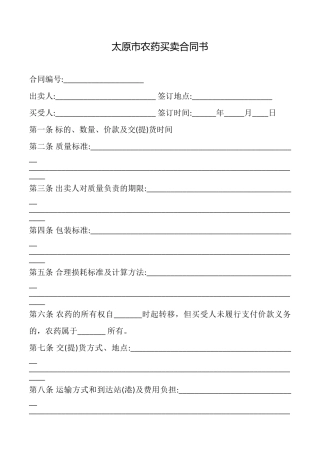 太原市农药买卖合同书
合同编号:____________________
出卖人:____________________ 签订地点:____________________
买受人:____________________ 签订时间:______年____月____日
第一条 标的、数量、价款及交(提)货时间
第二条 质量标准:________________________________________
__
________________________________________
____
第三条 出卖人对质量负责的期限:______________________________
__
________________________________________
____
第四条 包装标准:________________________________________
__
________________________________________
____
第五条 合理损耗标准及计算方法:______________________________
__
________________________________________
____
第六条 农药的所有权自________时起转移，但买受人未履行支付价款义务
的，农药属于_______ 所有。
第七条 交(提)货方式、地点:______________________________
__
________________________________________
____
第八条 运输方式和到达站(港)及费用负担:______________________
__
________________________________________